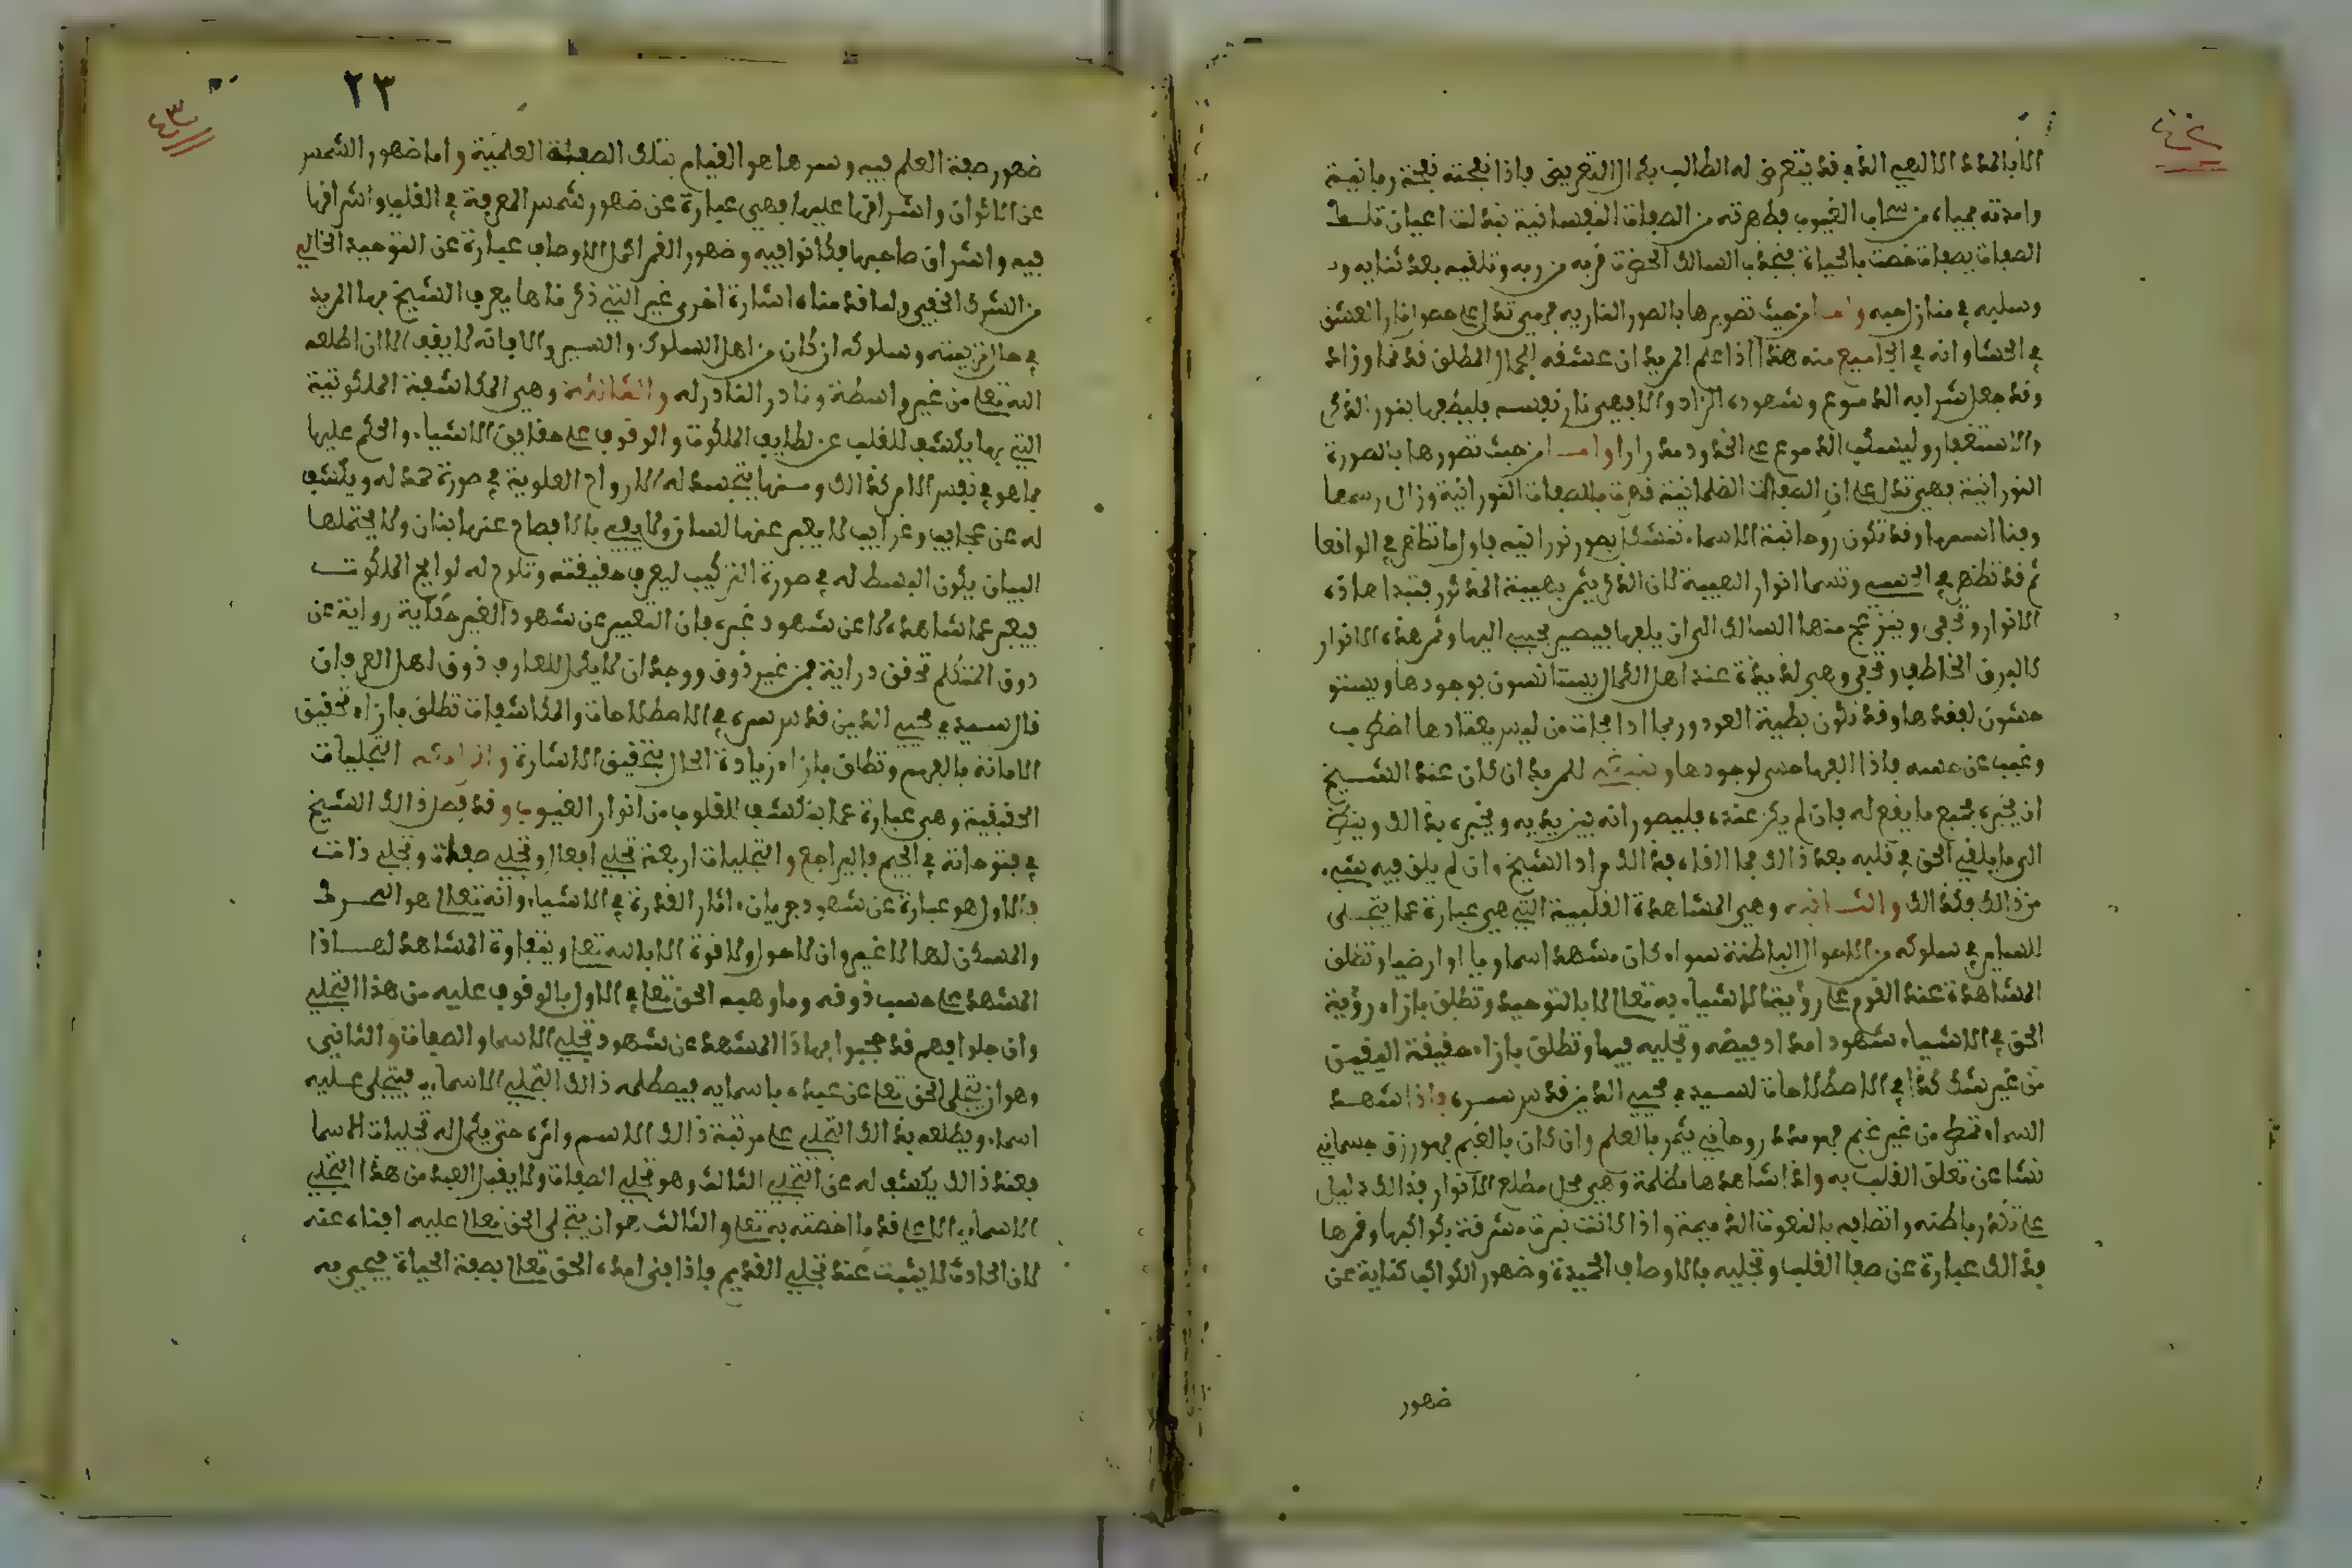 الا بالمدد الالهي الذي قد يتعرض له الطالب بكمال التعريض فاذا نفحته نفحة ربانية
وامدته بمياه من سحاب الغيوب فطهرته من الصفات النفسانية تبدلت اعيان تلك
الصفات بصفات خصت بالحياة فيجذب السالك الحضرة قربه من ربه وتلقيه بعد تنايه
وسلبه في منازل حبه واما من حيث تصويرها بالصور النارية فهي تدل على حصول نار العشق
في الحشا وانه في الجاميع منه هذا اذا علم المريد ان عشقه الجمال المطلق قد نما وزاد
وقد جعل شرابه الدموع وشهوده الزاد والا فهي نار نفسه فليطفها بنور الذكر
والاستغفار وليسكب الدموع على الخدود مدرارا واما من حيث تصورها بالصورة
النورانية فهي تدل على ان الصفات الظلمانية قهرت بالصفات النورانية وزال رسمها
وفنا اسمها وقد تكون روحانية الاسماء تتشكل بصور نورانية فاول ما تظهر في الواقعا
ثم قد تظهر في الحس وتسما انوار الهيبة لان الذكر يثمر بهيبة المذكور فتبدا هاذه
الانوار وتخفى وينزعج منها السالك الى ان يلفها فيصير يحب اليها وثمر هذه الانوار
كالبرق الخاطف وتخفى وهي لذيذة عند اهل الكمال يستانسون بوجودها ويستو
حشون لفقدها وقد تكون بطية العود وربما اذا جات من ليس يعتادها اضطرب
وغيب عن حسه فاذا الفها حس لوجودها وينبغي للمريد ان كان عند الشيخ
ان يخبره بجميع ما يقع له فان لم يكن عنده فليصور انه بين يديه ويخبره بذالك وينظر
الى ما يلقي الحق في قلبه بعد ذالك فما القاه فذالك مراد الشيخ وان لم يلق فيه شيء
من ذالك فكذالك والثانية وهي المشاهدة القلبية التي هي عبارة عما يتجلى
للساير في سلوكه من الاحوال الباطنة سواء كان مشهدا سماويا او ارضيا وتطلق
المشاهدة عند القوم على رؤية الاشياء به تعالى لا بالتوحيد وتطلق بازاء رؤية
الحق في الاشياء شهود امداد فيضه وتجليه فيها وتطلق بازاء حقيقة اليقين
من غير شك كذا في الاصطلاحات لسيدي محيي الدين قدس سره فاذا شهد
السماء تمطر من غير غيم فهو مدد روحاني يثمر بالعلم وان كان بالغيم فهو رزق جسماني
نشا عن تعلق القلب به واذا شاهدها مظلمة وهي محل مطلع الانوار فذالك دليل
على تكدر باطنه واتصافه بالنعوت الذميمة واذا كانت نيرة مشرقة بكواكبها وقمرها
فذالك عبارة عن صفا القلب وتجليه بالاوصاف الحميدة وضهور الكواكب كناية عن
ضهور
٢٣
ضهور صفة العلم فيه وسرها هو القيام بتلك الصفة العلمية واما ضهور الشمس
عن الاكوان واشراقها عليها فهي عبارة عن ضهور شمس المعرفة في القلب واشراقها
فيه واشراق صاحبها فكانوا فيه وضهور القمر الكمال الاوصاف عبارة عن التوحيد الخالي
من الشرك الخفي ولما قدمناه اشارة اخرى غير التي ذكرناها يعرف الشيخ بها المريد
في حال تربيته وسلوكه ان كان من اهل السلوك والسير والا فانه لا يقف الا ان اطلعه
الله تعالى من غير واسطة ونادر القادر له والثالثة وهي المكاشفة الملكوتية
التي بها يكشف للقلب عن لطايف الملكوت والوقوف على حقايق الاشياء والحكم عليها
بما هو في نفس الامر كذالك ومنها يتجسد له الارواح العلوية في صورة تمد له ويكشف
له عن عجايب وغرايب لا يعبر عنها لسان ولا يفي بالافصاح عنها بنان ولا يحتملها
البيان يكون البسط له في صورة التركيب ليعرف حقيقته وتلوح له لوايح الملكوت
فيعبر عما شاهده لا عن شهود غيره فان التعبير عن شهود الغير حكاية رواية عن
ذوق المتكلم تحقق دراية من غير ذوق ووجدان لا يكمل للعارف ذوق اهل العرفان
قال سيدي محيي الدين قدس سره في الاصطلاحات والمكاشفات تطلق بازاء تحقيق
الامانة بالفهم وتطلق بازاء زيادة الحال بتحقيق الاشارة والرابعة التجليات
الحقيقية وهي عبارة عما ينكشف للقلوب من انوار الغيوب وقد فصل ذالك الشيخ
في فتوحاته في الجيم فليراجع والتجليات اربعة تجلي افعال وتجلي صفات وتجلي ذات
فالاول هو عبارة عن شهود جريان اثار القدرة في الاشياء وانه تعالى هو المحرك
والمسكن لها لا غير وان لا حول ولا قوة الا بالله تعالى ويتفاوت المشاهد لهاذا
المشهد على حسب ذوقه وما وهبه الحق تعالى في الاول بالوقوف عليه من هذا التجلي
وان جلوا فهم قد حجبوا بهاذا المشهد عن شهود تجلي الاسما والصفات والثاني
وهو ان يتجلى الحق تعالى عن عبده باسمايه فيصطلمه ذالك التجلي الاسماءي فيتجلى عليه
اسماء ويطلعه بذالك التجلي على مرتبة ذالك الاسم واثره حتى يكمل له تجليات الاسما
فعند ذالك يكشف له عن التجلي الثالث وهو تجلي الصفات ولا يقبل العبد من هذا التجلي
الاسماءي الا على قدر ما اخصته به تعالى والثالث هو ان يتجلى الحق تعالى عليه افناه عنه
لان الحادث لا يثبت عند تجلي القديم فاذا فني امده الحق تعالى بصفة الحياة فيحيى به